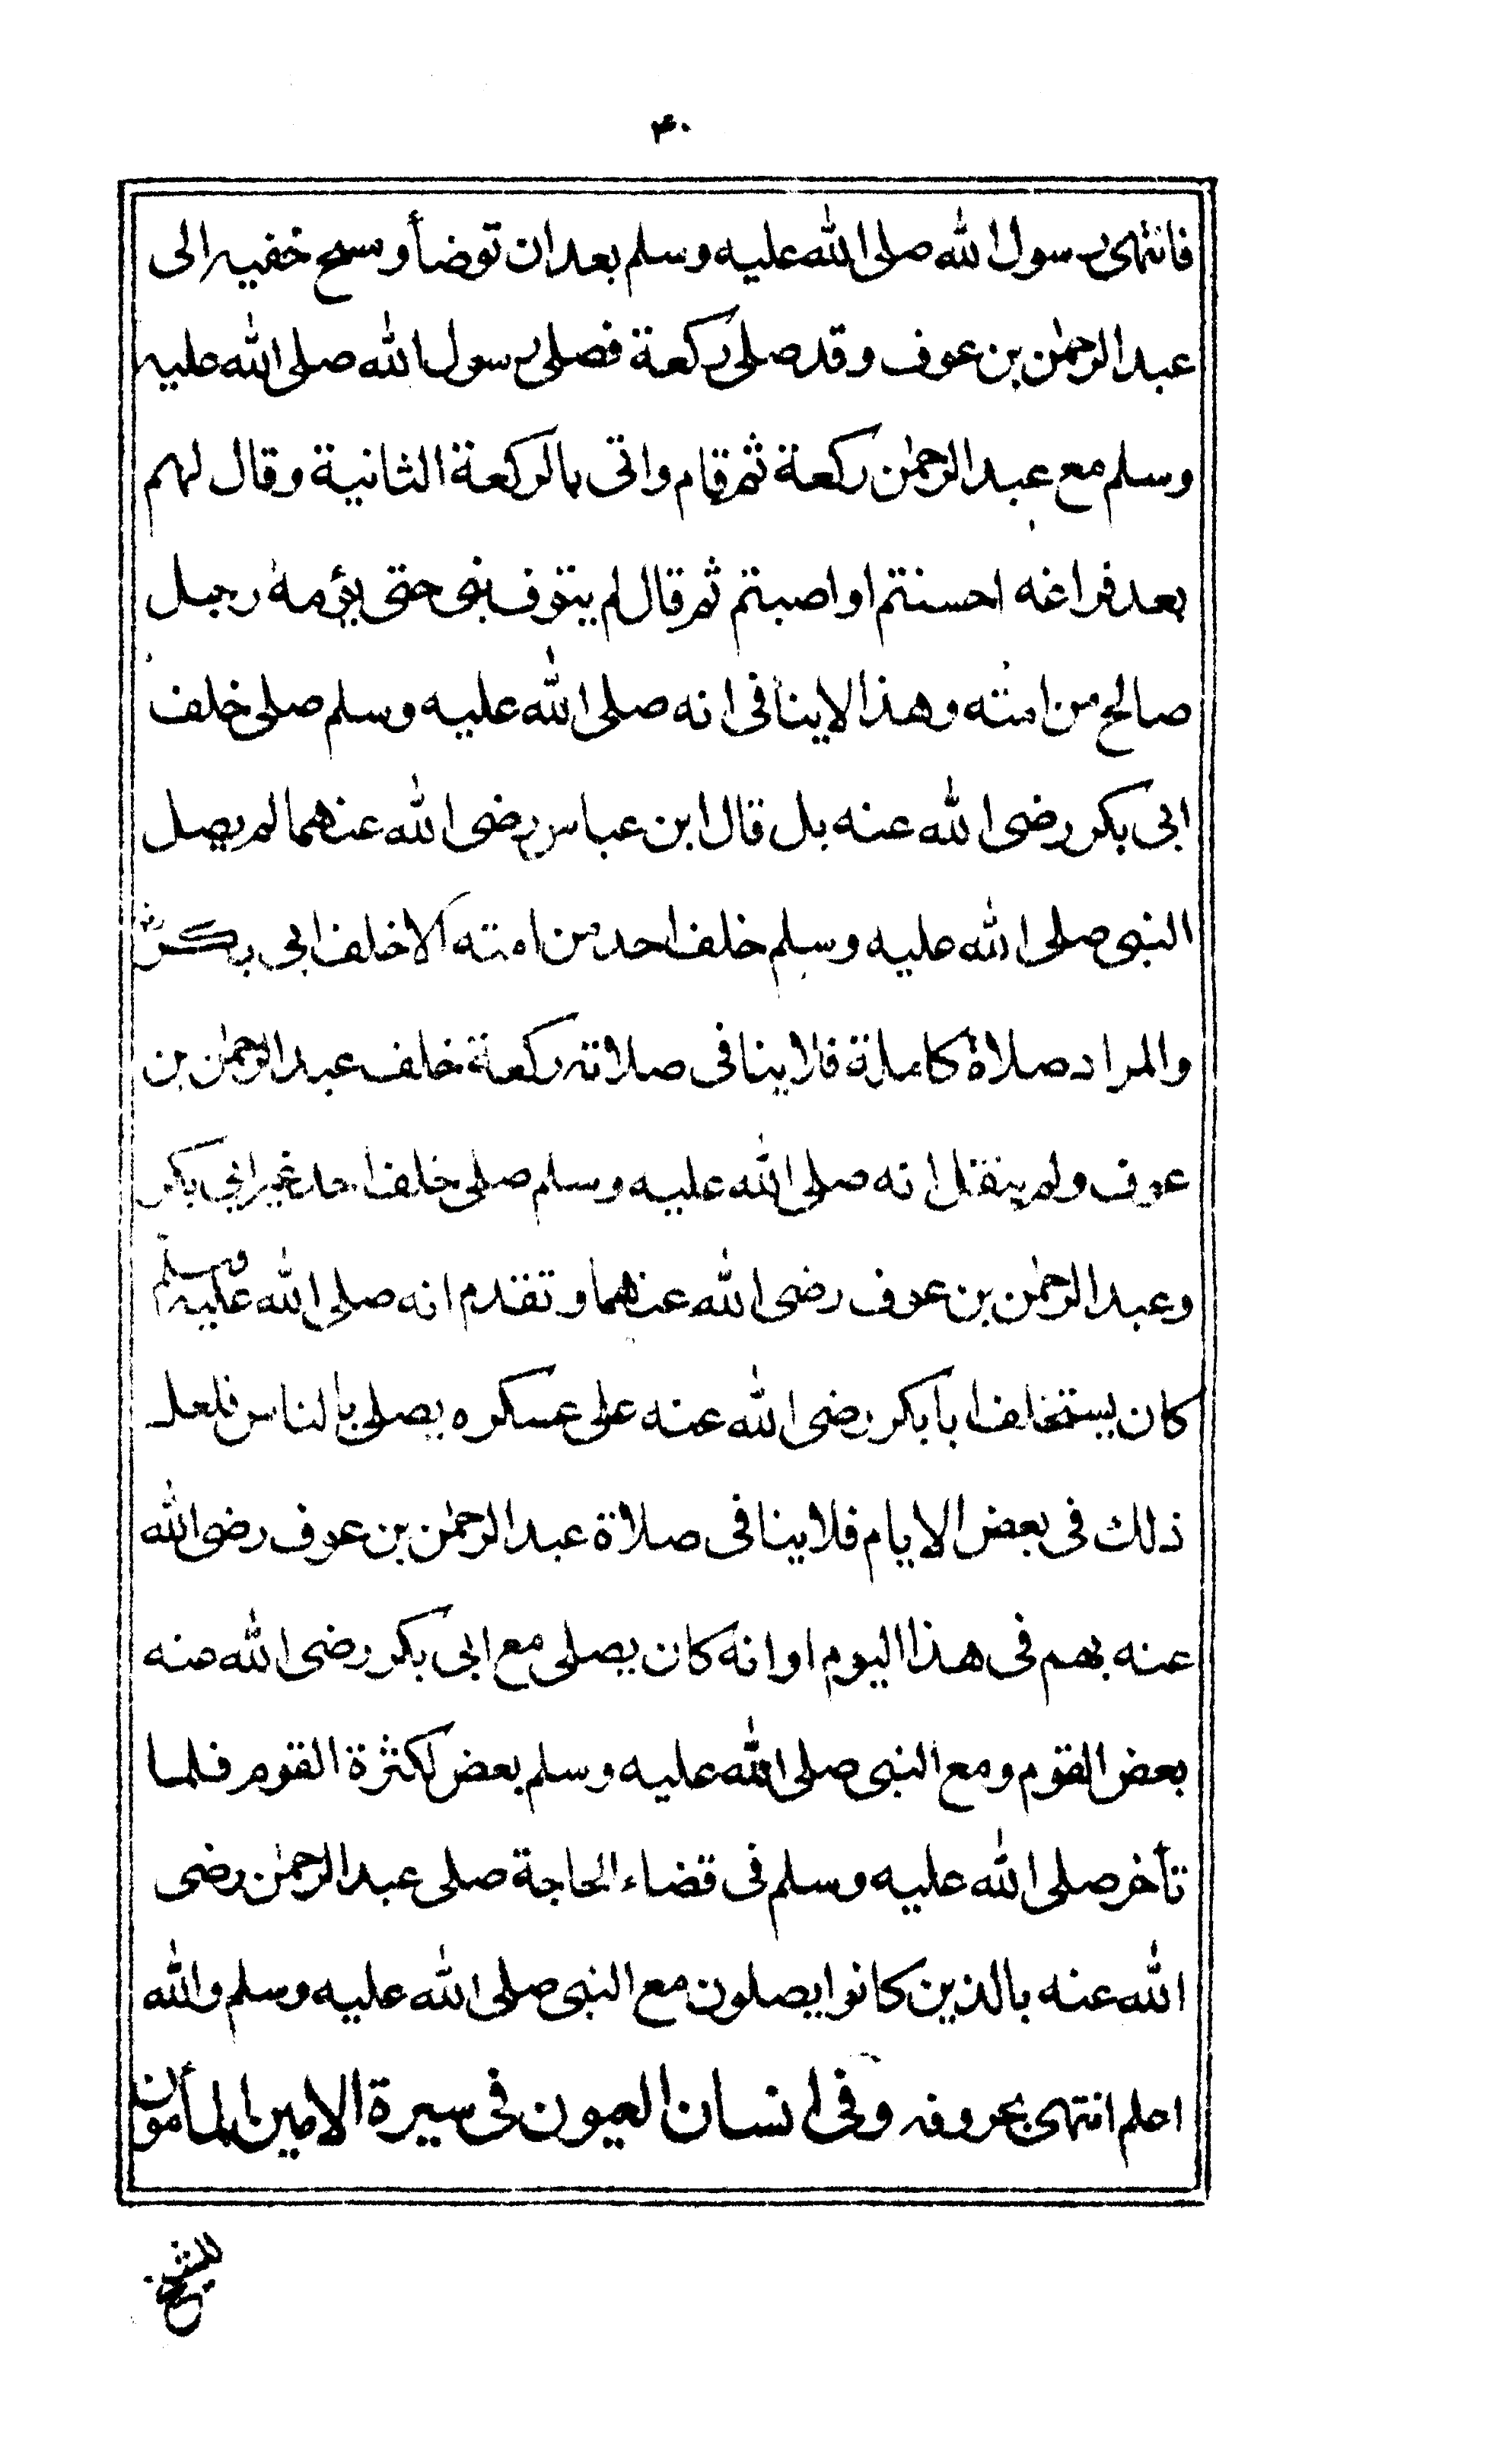 ۴۰
فانتهى رسول الله صلى الله عليه وسلم بعد ان توضأ ومسح خفيه الى
عبد الرحمٰن بن عوف وقد صلى ركعة فصلى رسول الله صلى الله عليه
وسلم مع عبد الرحمٰن ركعة ثم قام واتى بالركعة الثانية وقال لهم
بعد فراغه احسنتم او اصبتم ثم قال لم يتوف بنى حتى يؤمه رجل
صالح من امته وهذا لا ينافى انه صلى الله عليه وسلم صلى خلف
ابى بكر رضى الله عنه بل قال ابن عباس رضى الله عنهما لم يصل
النبى صلى الله عليه وسلم خلف احد من امته الا خلف ابى بكر رض
والمراد صلاة كاملة فلا ينافى صلاته ركعة خلف عبد الرحمٰن بن
عوف ولم ينقل انه صلى الله عليه وسلم صلى خلف احد غير ابى بكر
وعبد الرحمٰن بن عوف رضى الله عنهما وتقدم انه صلى الله عليه وسلم
كان يستخلف ابا بكر رضى الله عنه على عسكره يصلى بالناس فلعل
ذلك فى بعض الايام فلا ينافى صلاة عبد الرحمٰن بن عوف رضى الله
عنه بهم فى هذا اليوم او انه كان يصلى مع ابى بكر رضى الله عنه
بعض القوم ومع النبى صلى الله عليه وسلم بعض لكثرة القوم فلما
تأخر صلى الله عليه وسلم فى قضاء الحاجة صلى عبد الرحمٰن رضى
الله عنه بالذين كانوا يصلون مع النبى صلى الله عليه وسلم والله
اعلم انتهى بحروفه وفى انسان العيون فى سيرة الامين المأمون
للشيخ